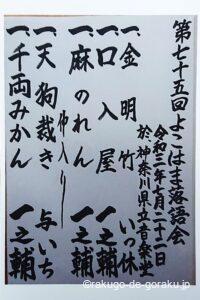 第七十五回よこはま落語会
令和三年七月二十二日
於神奈川県立音楽堂
一、金明竹 いっ休
一、口入屋 一之輔
一、麻のれん 一之輔
仲入り
一、天狗裁き 与いち
一、千両みかん 一之輔
©rakugo-de-goraku.jp